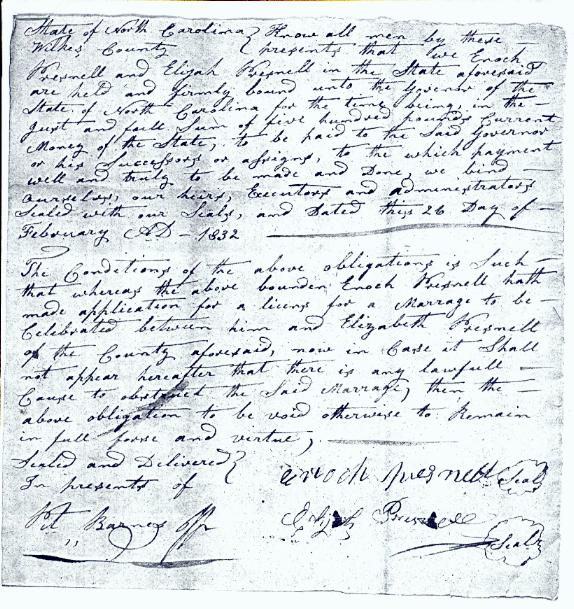 State of North Carolina } Know all men by these
Wilkes County } presents that we Enoch
Presnell and Elijah Presnell in the State aforesaid
are held and firmly bound unto the Govenor of the
State of North Carolina for the time being, in the
Just and full Sum of five hundred pounds Current
Money of the State, to be paid to the Said Governor
or his Successors or assigns, to the which payment
well and truly to be made and Done, we bind
ourselves, our heirs, Executors and administrators
Sealed with our Seals, and Dated this 26 Day of
February AD - 1832
The Conditions of the above obligations is Such
that whereas the above bounden Enoch Presnell hath
made application for a licens for a Marrage to be
Celebrated between him and Elizabeth Presnell
of the County aforesaid, now in Case it Shall
not appear hereafter that there is any lawfull
Cause to obstruct the Said Marrage, then the
above obligation to be void otherwise to Remain
in full forse and virtue,
Sealed and Delivered }
In presents of
enoch presnell Seal
Barnes
Elijah Presnell Seal